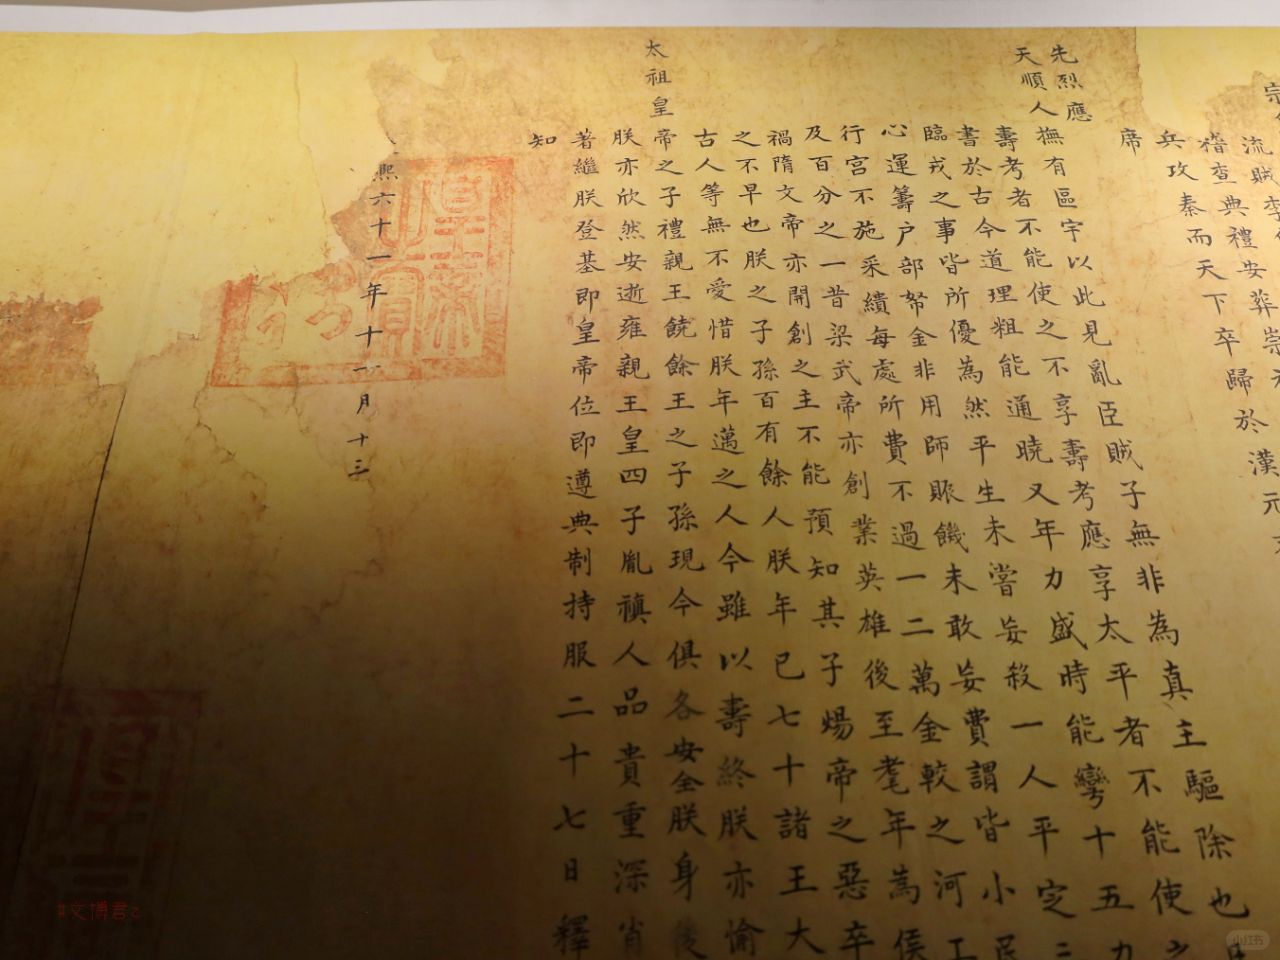 宗
流賊李
稽查典禮安葬崇
兵攻秦而天下卒歸於漢元
席
先烈應
天順人撫有區宇以此見亂臣賊子無非為真主驅除也
壽考者不能使之不享壽考應享太平者不能使之
書於古今道理粗能通曉又年力盛時能彎十五力
臨戎之事皆所優為然平生未嘗妄殺一人平定三
心運籌戶部帑金非用師賑饑未敢妄費謂皆小民
行宮不施采繢每處所費不過一二萬金較之河工
及百分之一昔梁武帝亦創業英雄後至耄年為侯
禍隋文帝亦開創之主不能預知其子煬帝之惡卒
之不早也朕之子孫百有餘人朕年已七十諸王大
古人等無不愛惜朕年邁之人今雖以壽終朕亦愉
太祖皇帝之子禮親王饒餘王之子孫現今俱各安全朕身後
朕亦欣然安逝雍親王皇四子胤禛人品貴重深肖
著繼朕登基即皇帝位即遵典制持服二十七日釋
知
熙六十一年十一月十三
皇帝之寶
#文博君2
小红书